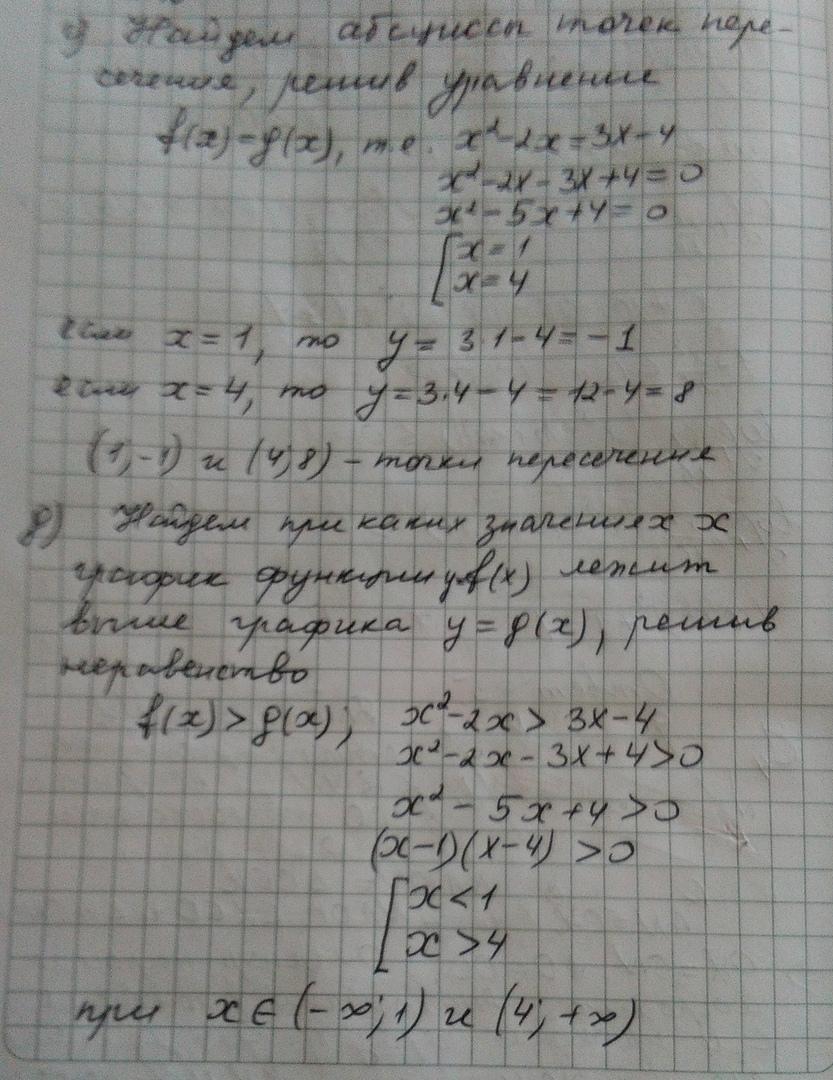 Найдем абсциссы точек пере-
сечения, решив уравнение
f(x)=g(x), т.е. x²-2x=3x-4
x²-2x-3x+4=0
x²-5x+4=0
[x=1
x=4
если x=1, то y=3·1-4=-1
если x=4, то y=3·4-4=12-4=8
(1;-1) и (4;8) - точки пересечения
Найдем при каких значениях x
график функции y=f(x) лежит
выше графика y=g(x), решив
неравенство
f(x)>g(x); x²-2x>3x-4
x²-2x-3x+4>0
x²-5x+4>0
(x-1)(x-4)>0
[x<1
x>4
при x∈(-∞;1) и (4;+∞)